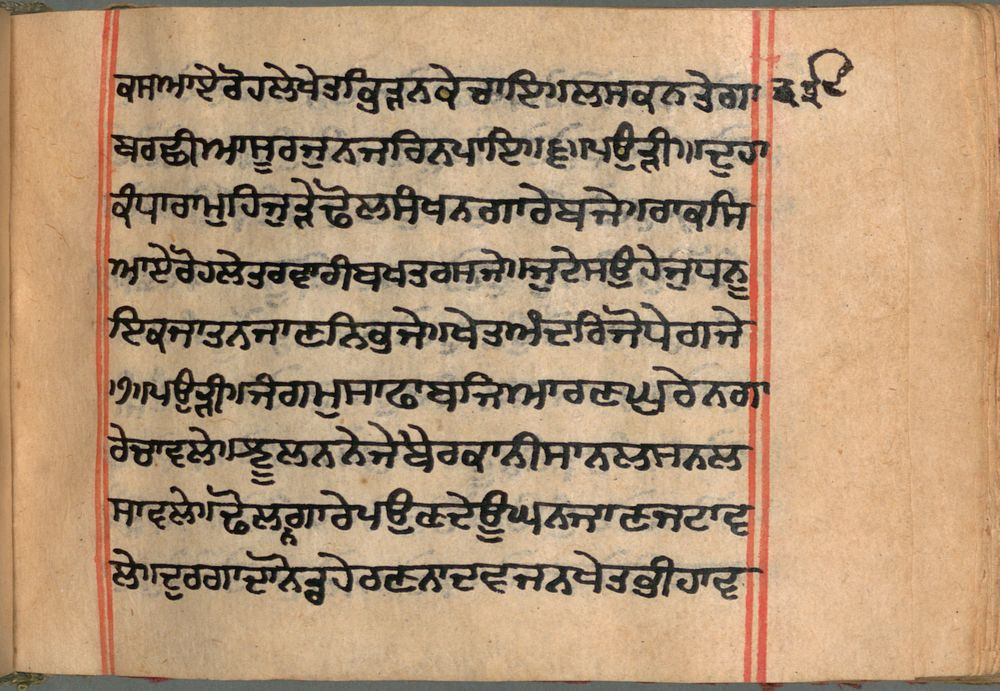 ਕਸਆਏਰੋਹਲੇਖੇਤਭਿੜਨਕੇਚਾਇ॥ਲਸਕਨਤੇਗਾ
ਬਰਛੀਆਸੂਰਜੁਨਜਰਿਨਪਾਇ॥੬॥ਪਉੜੀ॥ਦੁਹਾ
ਕੰਧਾਰਾਮੁਹਿਜੁੜੇਢੋਲਸੰਖਨਗਾਰੇਬਜੇ॥ਰਾਕਸਿ
ਆਏਰੋਹਲੇਤਰਵਾਰੀਬਖਤਰਸਜੇ॥ਜੁਟੇਸਉਹੇਜੁਧਨੂ
ਇਕਜਾਤਨਜਾਣਨਿਭਜੇ॥ਖੇਤਅੰਦਰਿਜੋਧੇਗਜੇ
॥੭॥ਪਉੜੀ॥ਜੰਗਮੁਸਾਫਾਬਜਿਆਰਣਘੁਰੇਨਗਾ
ਰੇਚਾਵਲੇ॥ਝੂਲਨਨੇਜੇਬੈਰਕਾਨੀਸਾਨਲਸਨਲ
ਸਾਵਲੇ॥ਢੋਲਨਗਾਰੇਪਉਣਦੇਊਘਨਜਾਣਜਟਾਵ
ਲੇ॥ਦੁਰਗਾਦਾਨੋਡਹੇਰਣਨਾਦਵਜਨਖੇਤਭੀਹਾਵ